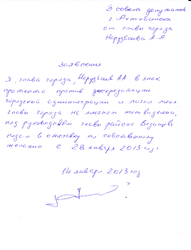 В совет депутатов
г. Яхтовинска
от главы города
Нерубаева А.А
заявление
Я, глава города, Нерубаев АА в знак
протеста против дискредитации
городской администрации и меня как
главы города на местном телевидении,
под руководством главы района
подаю в отставку по собственному
желанию с 28 января 2013 года
14 января 2013 год